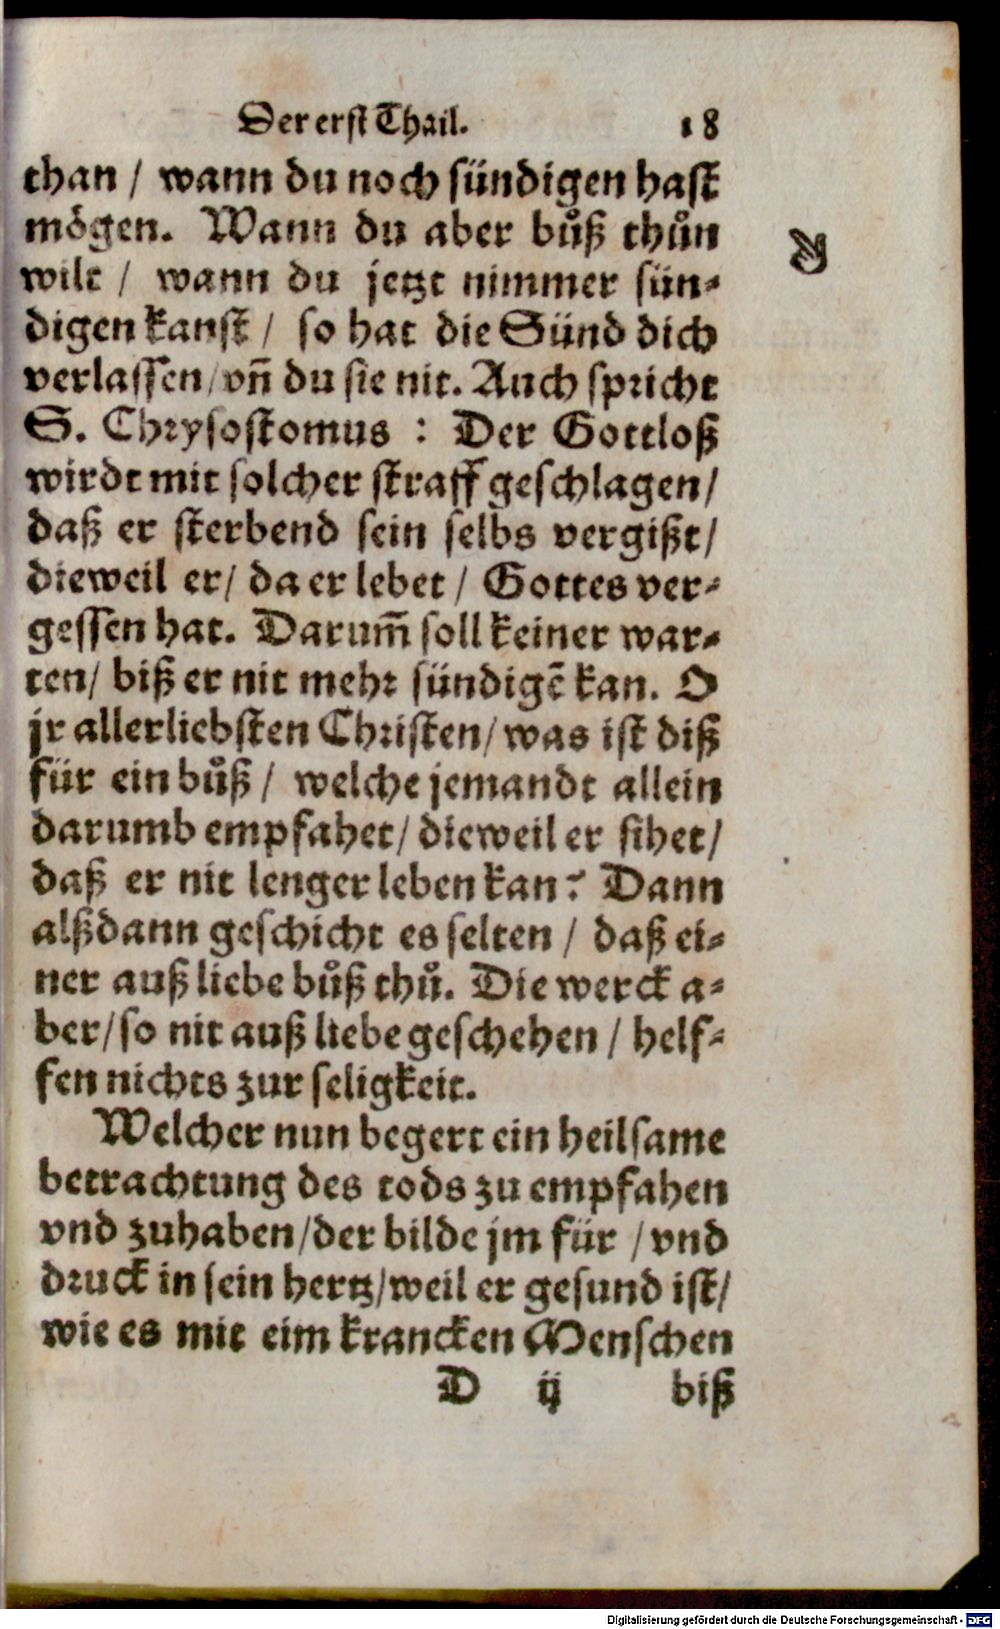 Der erst Thail. 18
than / wann du noch sündigen hast
mögen. Wann du aber bůß thůn
wilt / wann du jetzt nimmer sün-
digen kanst / so hat die Sünd dich
verlassen/ vñ du sie nit. Auch spricht
S. Chrysostomus : Der Gottloß
wirdt mit solcher straff geschlagen/
daß er sterbend sein selbs vergißt/
dieweil er/ da er lebet / Gottes ver-
gessen hat. Darum̃ soll keiner war-
ten/ biß er nit mehr sündigẽ kan. O
jr allerliebsten Christen/ was ist diß
für ein bůß / welche jemandt allein
darumb empfahet/ dieweil er sihet/
daß er nit lenger leben kan? Dann
alßdann geschicht es selten / daß ei-
ner auß liebe bůß thů. Die werck a-
ber/ so nit auß liebe geschehen / helf-
fen nichts zur seligkeit.
Welcher nun begert ein heilsame
betrachtung des tods zu empfahen
vnd zuhaben/ der bilde jm für / vnd
druck in sein hertz/ weil er gesund ist/
wie es mit eim krancken Menschen
D ij biß
Digitalisierung gefördert durch die Deutsche Forschungsgemeinschaft - DFG